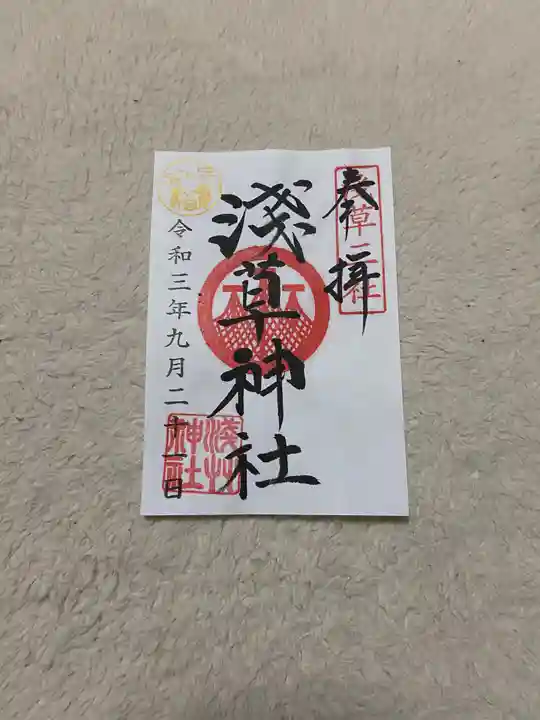 奉拝
浅草三社
淺草神社
令和三年九月二十一日
淺草神社